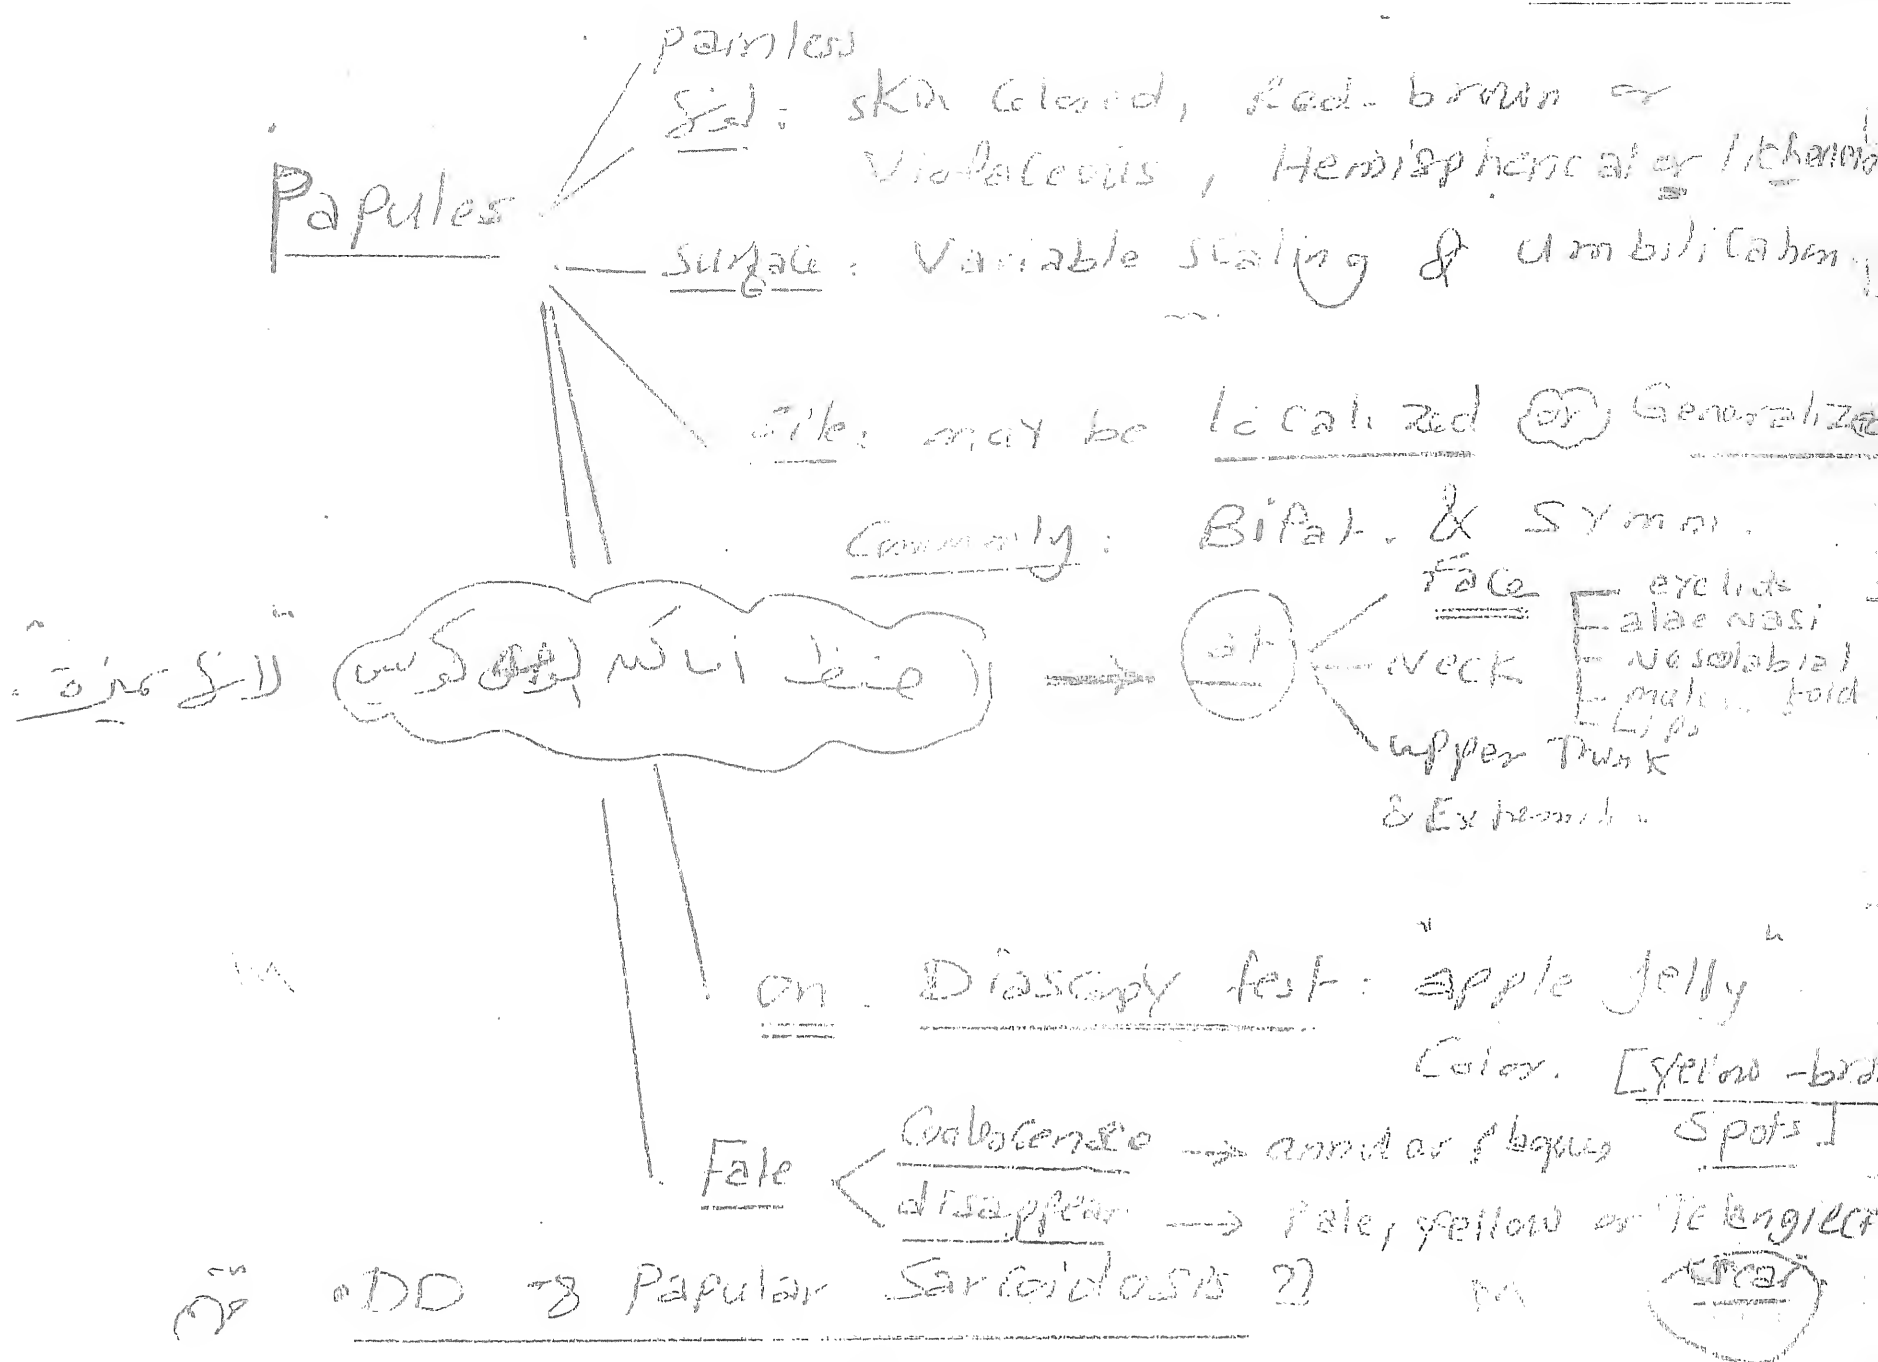 painless
Papules
skin Colored, Red-brown or
Violaceous, Hemispherical or lichenoid
surface: Variable scaling & umbilication
site: may be localized or Generalized
Commonly: Bilat. & Symm.
at
Face
eyelids
alae nasi
Nasolabial
fold
Lips
Neck
upper Trunk
& Extremit.
on Diascopy test: "apple jelly"
Color. [yellow-bro
spots]
Fate
Coalescence → annular plaques
disappear → Pale, yellow or Telangiect
scar
DD of Papular Sarcoidosis ??